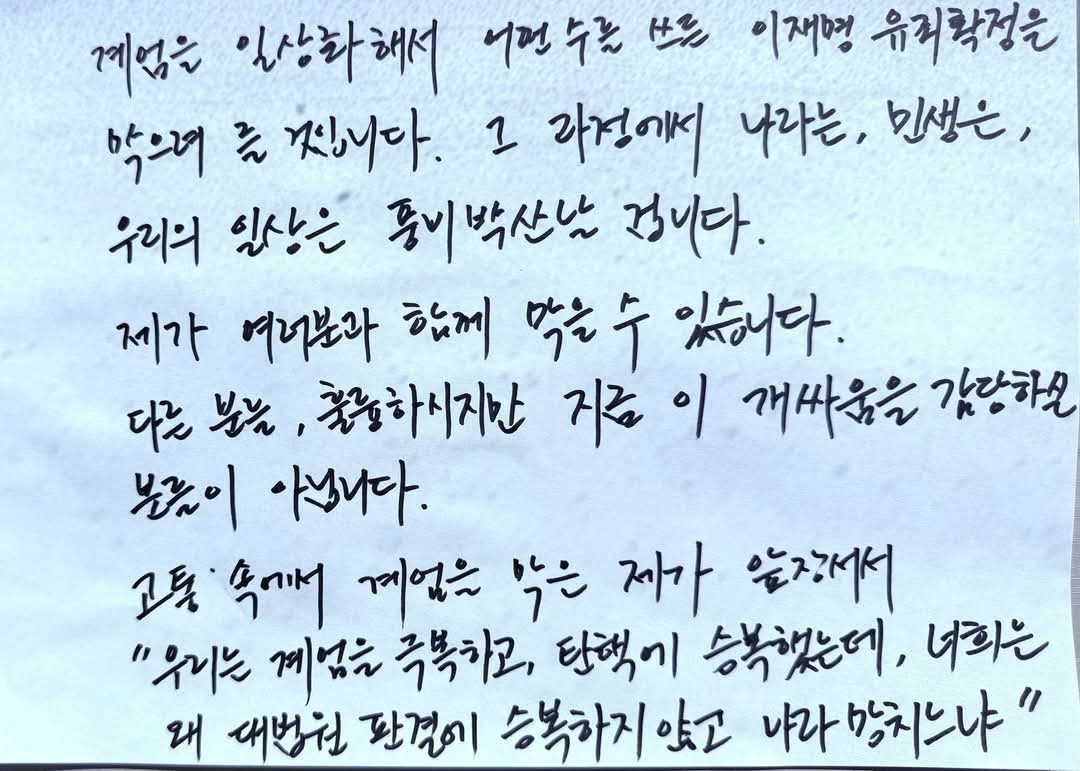 계엄을 일상화해서 어떤수를 쓰든 이재명 유죄확정을
막으려 들 것입니다. 그 과정에서 나라는, 민생은,
우리의 일상은 풍비박산날 겁니다.
제가 여러분과 함께 막을 수 있습니다.
다른 분들, 훌륭하시지만 지금 이 개싸움을 감당하실
분들이 아닙니다.
고통 속에서 계엄을 막은 제가 앞장서서
"우리는 계엄을 극복하고, 탄핵에 승복했는데, 너희는
왜 대법원 판결에 승복하지않고 나라 망치느냐"